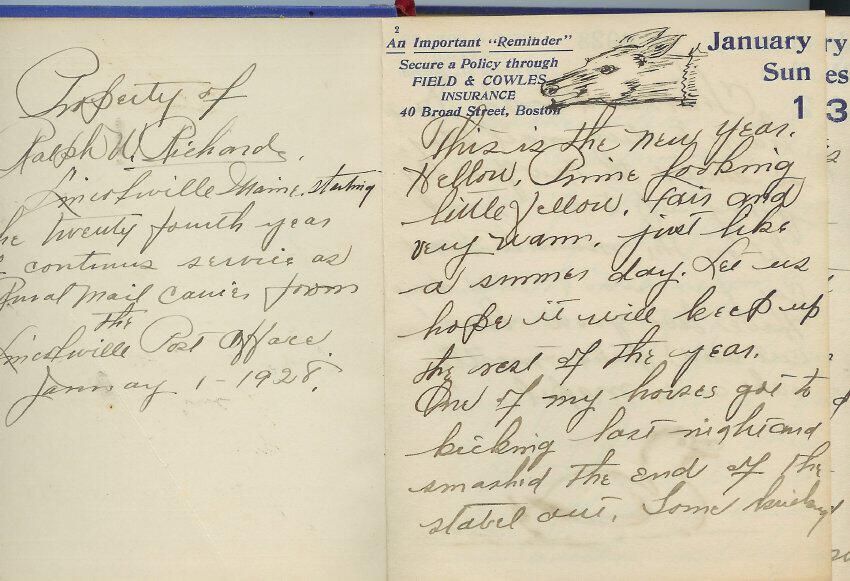 Property of
Ralph W. Richards.
Lincolnville Maine, starting
he twenty fourth year
continus service as
Rural Mail Carrier from
the
Lincolnville Post Office
January 1 - 1928.
2
An Important "Reminder"
Secure a Policy through
FIELD & COWLES
INSURANCE
40 Broad Street, Boston
January
Sun
1
This is the new year.
Hellow, Prime looking
little fellow. Fair and
very warm, just like
a summer day. Let us
hope it will keep up
the rest of the year.
One of my horses got to
kicking last night and
smashed the end of the
stabel out. Some
ry
es
3